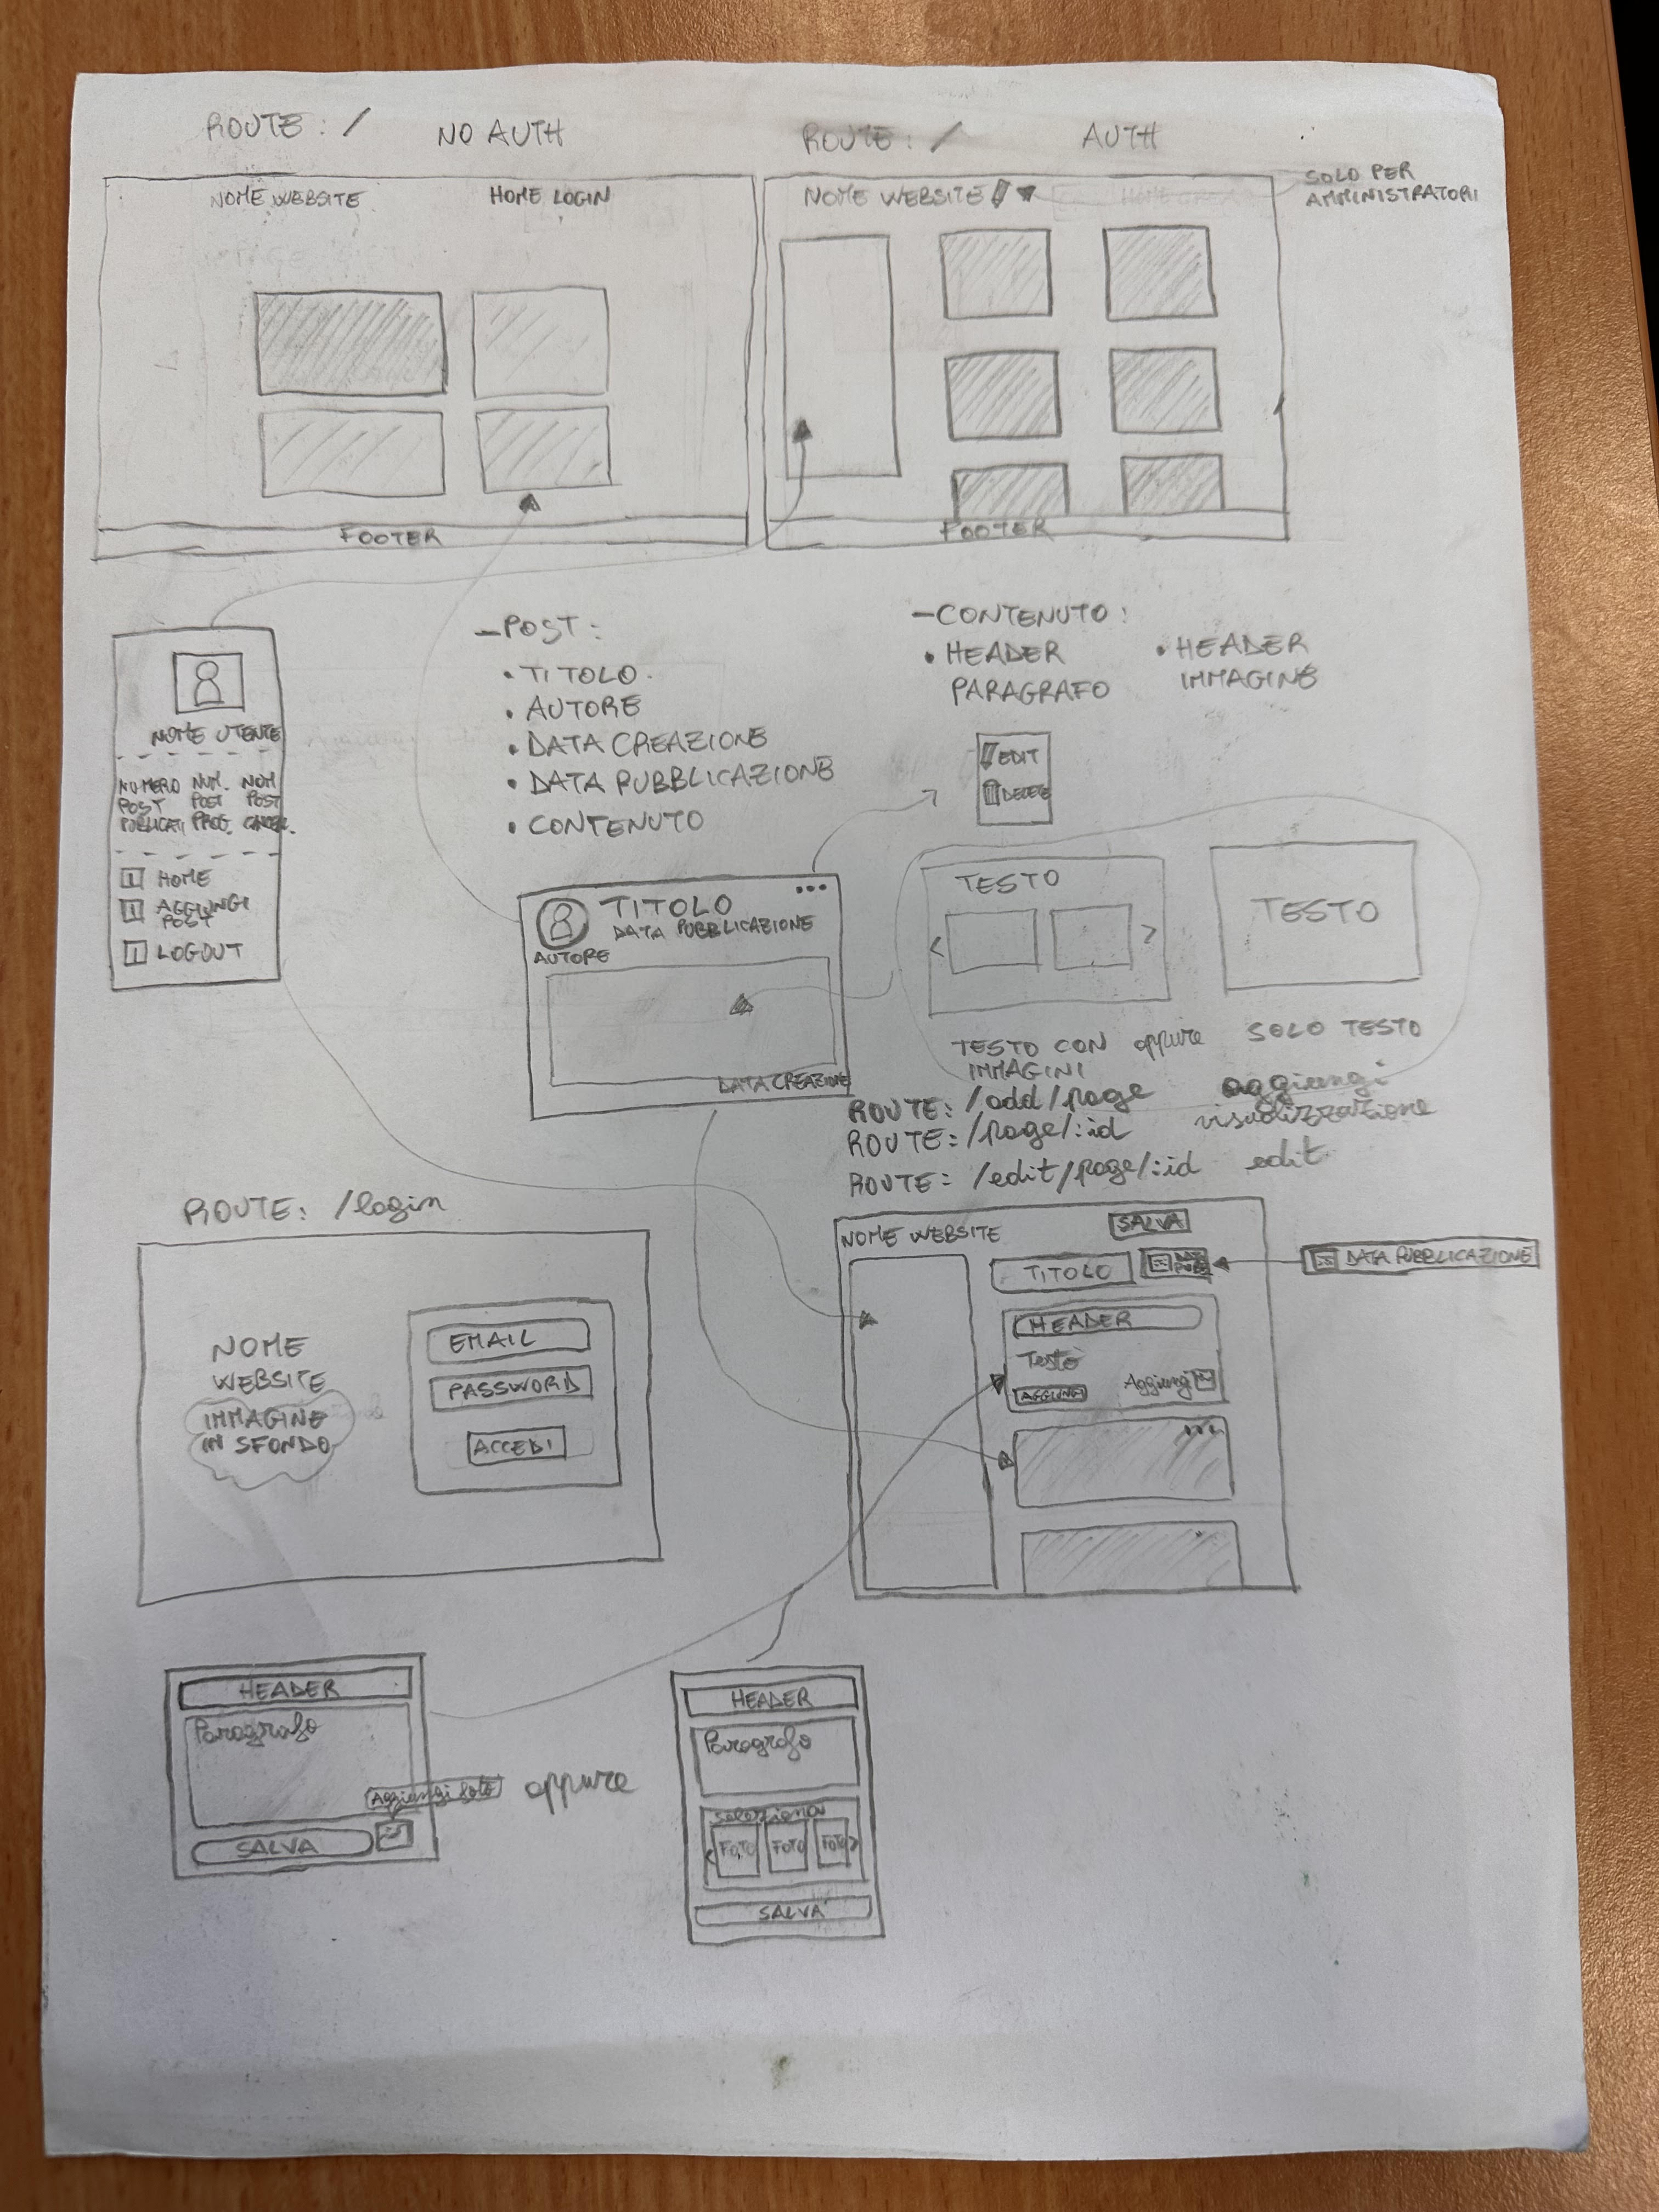 ROUTE: /
NO AUTH
NOME WEBSITE
HOME LOGIN
FOOTER
ROUTE: /
AUTH
SOLO PER
AMMINISTRATORI
NOME WEBSITE
FOOTER
NOME UTENTE
NUMERO NUM. NUM
POST POST POST
PUBLICATI PROG. CANCEL.
HOME
AGGIUNGI
POST
LOGOUT
- POST:
• TITOLO
• AUTORE
• DATA CREAZIONE
• DATA PUBBLICAZIONE
• CONTENUTO
- CONTENUTO:
• HEADER
PARAGRAFO
• HEADER
IMMAGINE
EDIT
DELETE
...
TITOLO
DATA PUBBLICAZIONE
AUTORE
DATA CREAZIONE
TESTO
< >
TESTO
TESTO CON
IMMAGINI
oppure
SOLO TESTO
ROUTE: /add/page aggiungi
ROUTE: /page/:id visualizzazione
ROUTE: /edit/page/:id edit
ROUTE: /login
NOME
WEBSITE
IMMAGINE
IN SFONDO
EMAIL
PASSWORD
ACCEDI
NOME WEBSITE
SALVA
TITOLO
DATA PUBBLICAZIONE
HEADER
Testo
AGGIUNGI
Aggiungi
...
HEADER
Paragrafo
Aggiungi foto
SALVA
oppure
HEADER
Paragrafo
seleziona
< FOTO FOTO FOTO >
SALVA